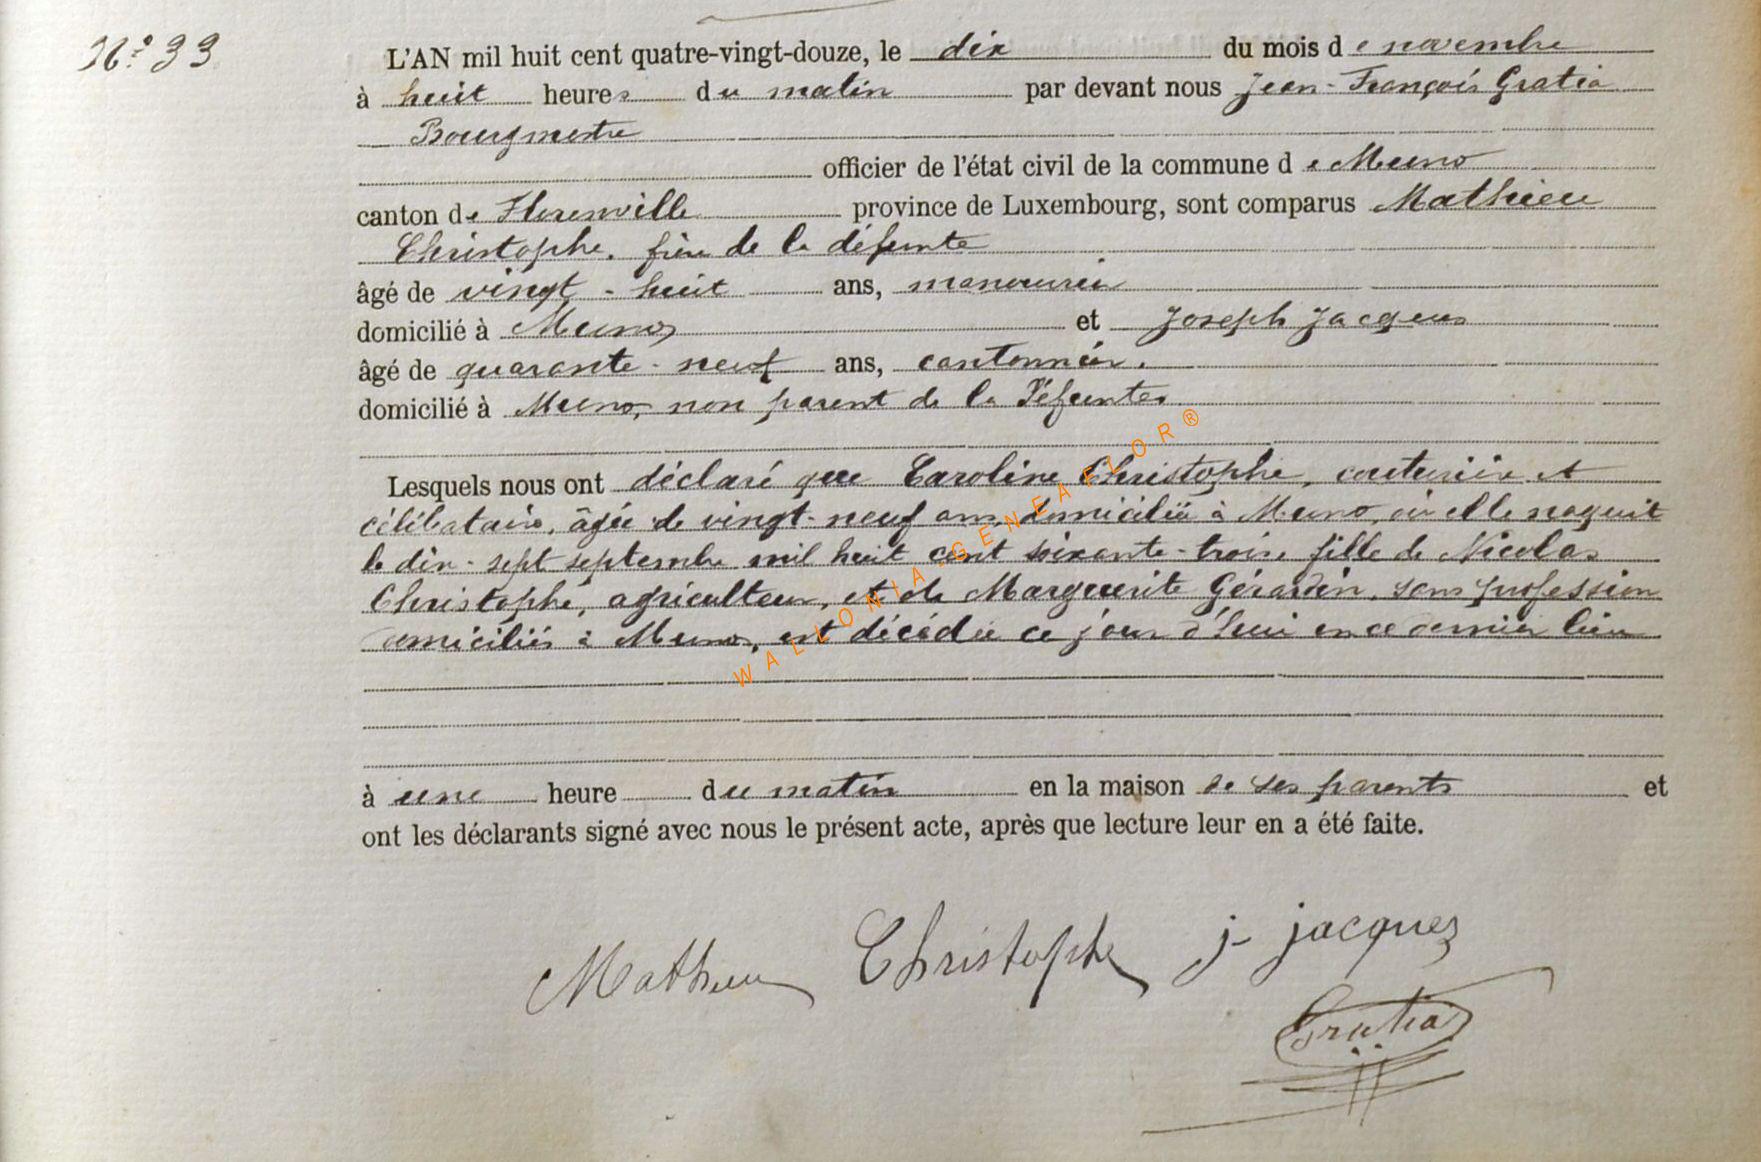 N° 33
L'AN mil huit cent quatre-vingt-douze, le dix du mois de novembre
à huit heures du matin par devant nous Jean-François Gratia
Bourgmestre
officier de l'état civil de la commune de Muno
canton de Florenville province de Luxembourg, sont comparus Mathieu
Christophe, frère de la défunte
âgé de vingt-huit ans, manouvrier
domicilié à Muno, et Joseph Jacques
âgé de quarante-neuf ans, cantonnier,
domicilié à Muno, non parent de la Défunte.
Lesquels nous ont déclaré que Caroline Christophe, couturière et
célibataire, âgée de vingt-neuf ans, domiciliée à Muno, où elle naquit
le dix-sept septembre mil huit cent soixante-trois, fille de Nicolas
Christophe, agriculteur, et de Marguerite Gérardin, sans profession
domiciliés à Muno, est décédée ce jour d'hui en ce dernier lieu
à une heure du matin en la maison de ses parents et
ont les déclarants signé avec nous le présent acte, après que lecture leur en a été faite.
Mathieu Christophe j- jacques
Gratia
WALLONIA-GENEAFLOR®